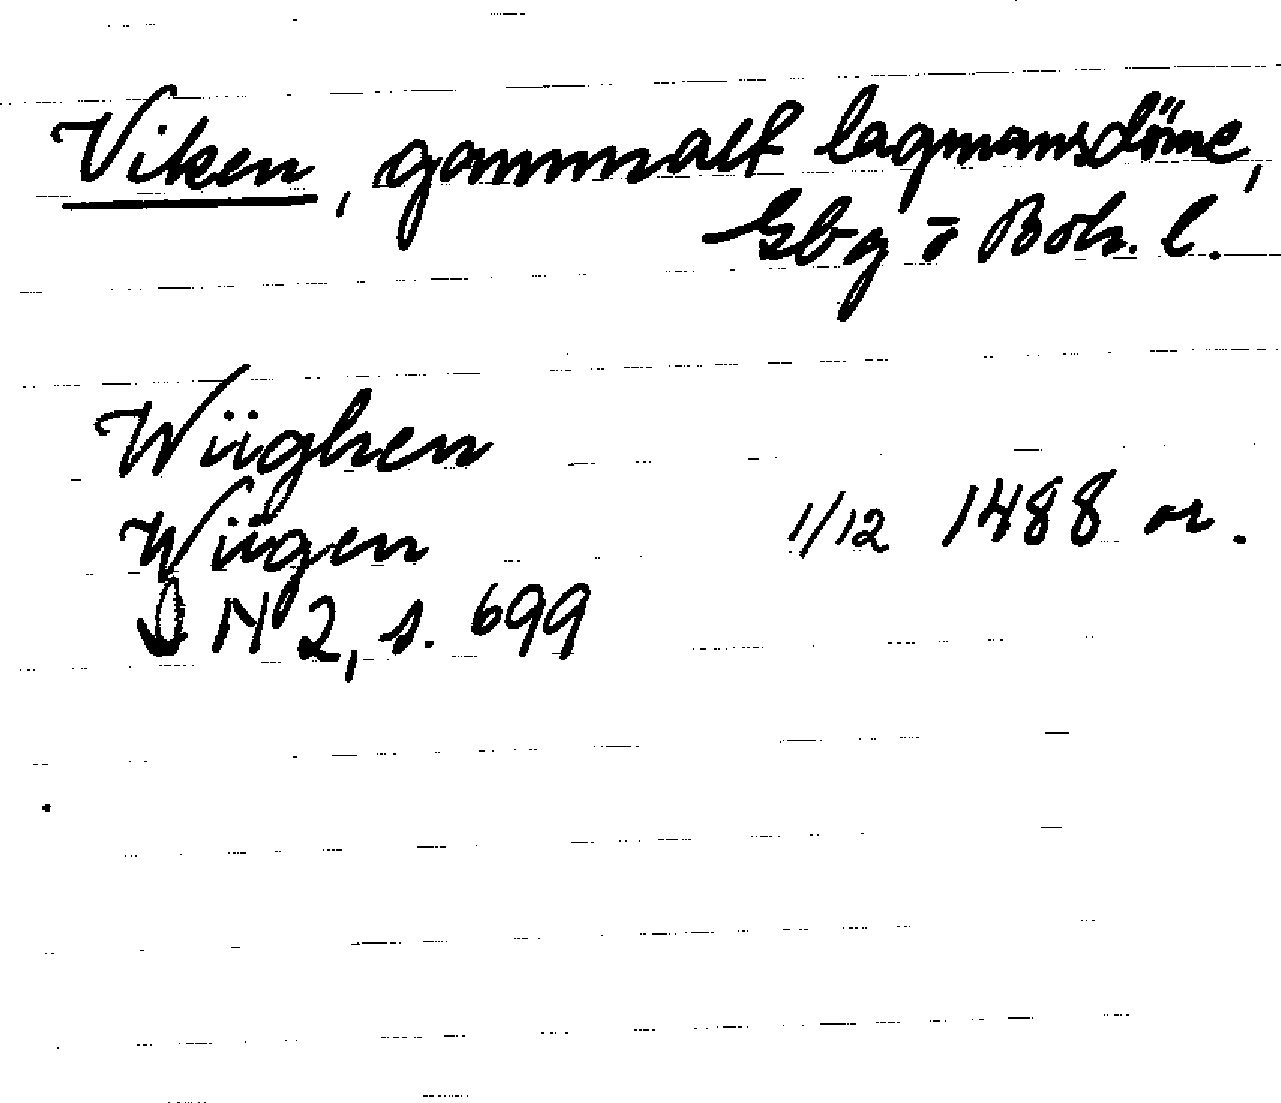 Viken, gammalt lagmansdöme,
Gbg o Boh. l.
Wiighen
Wiigen 1/12 1488 or.
N 2, s. 699